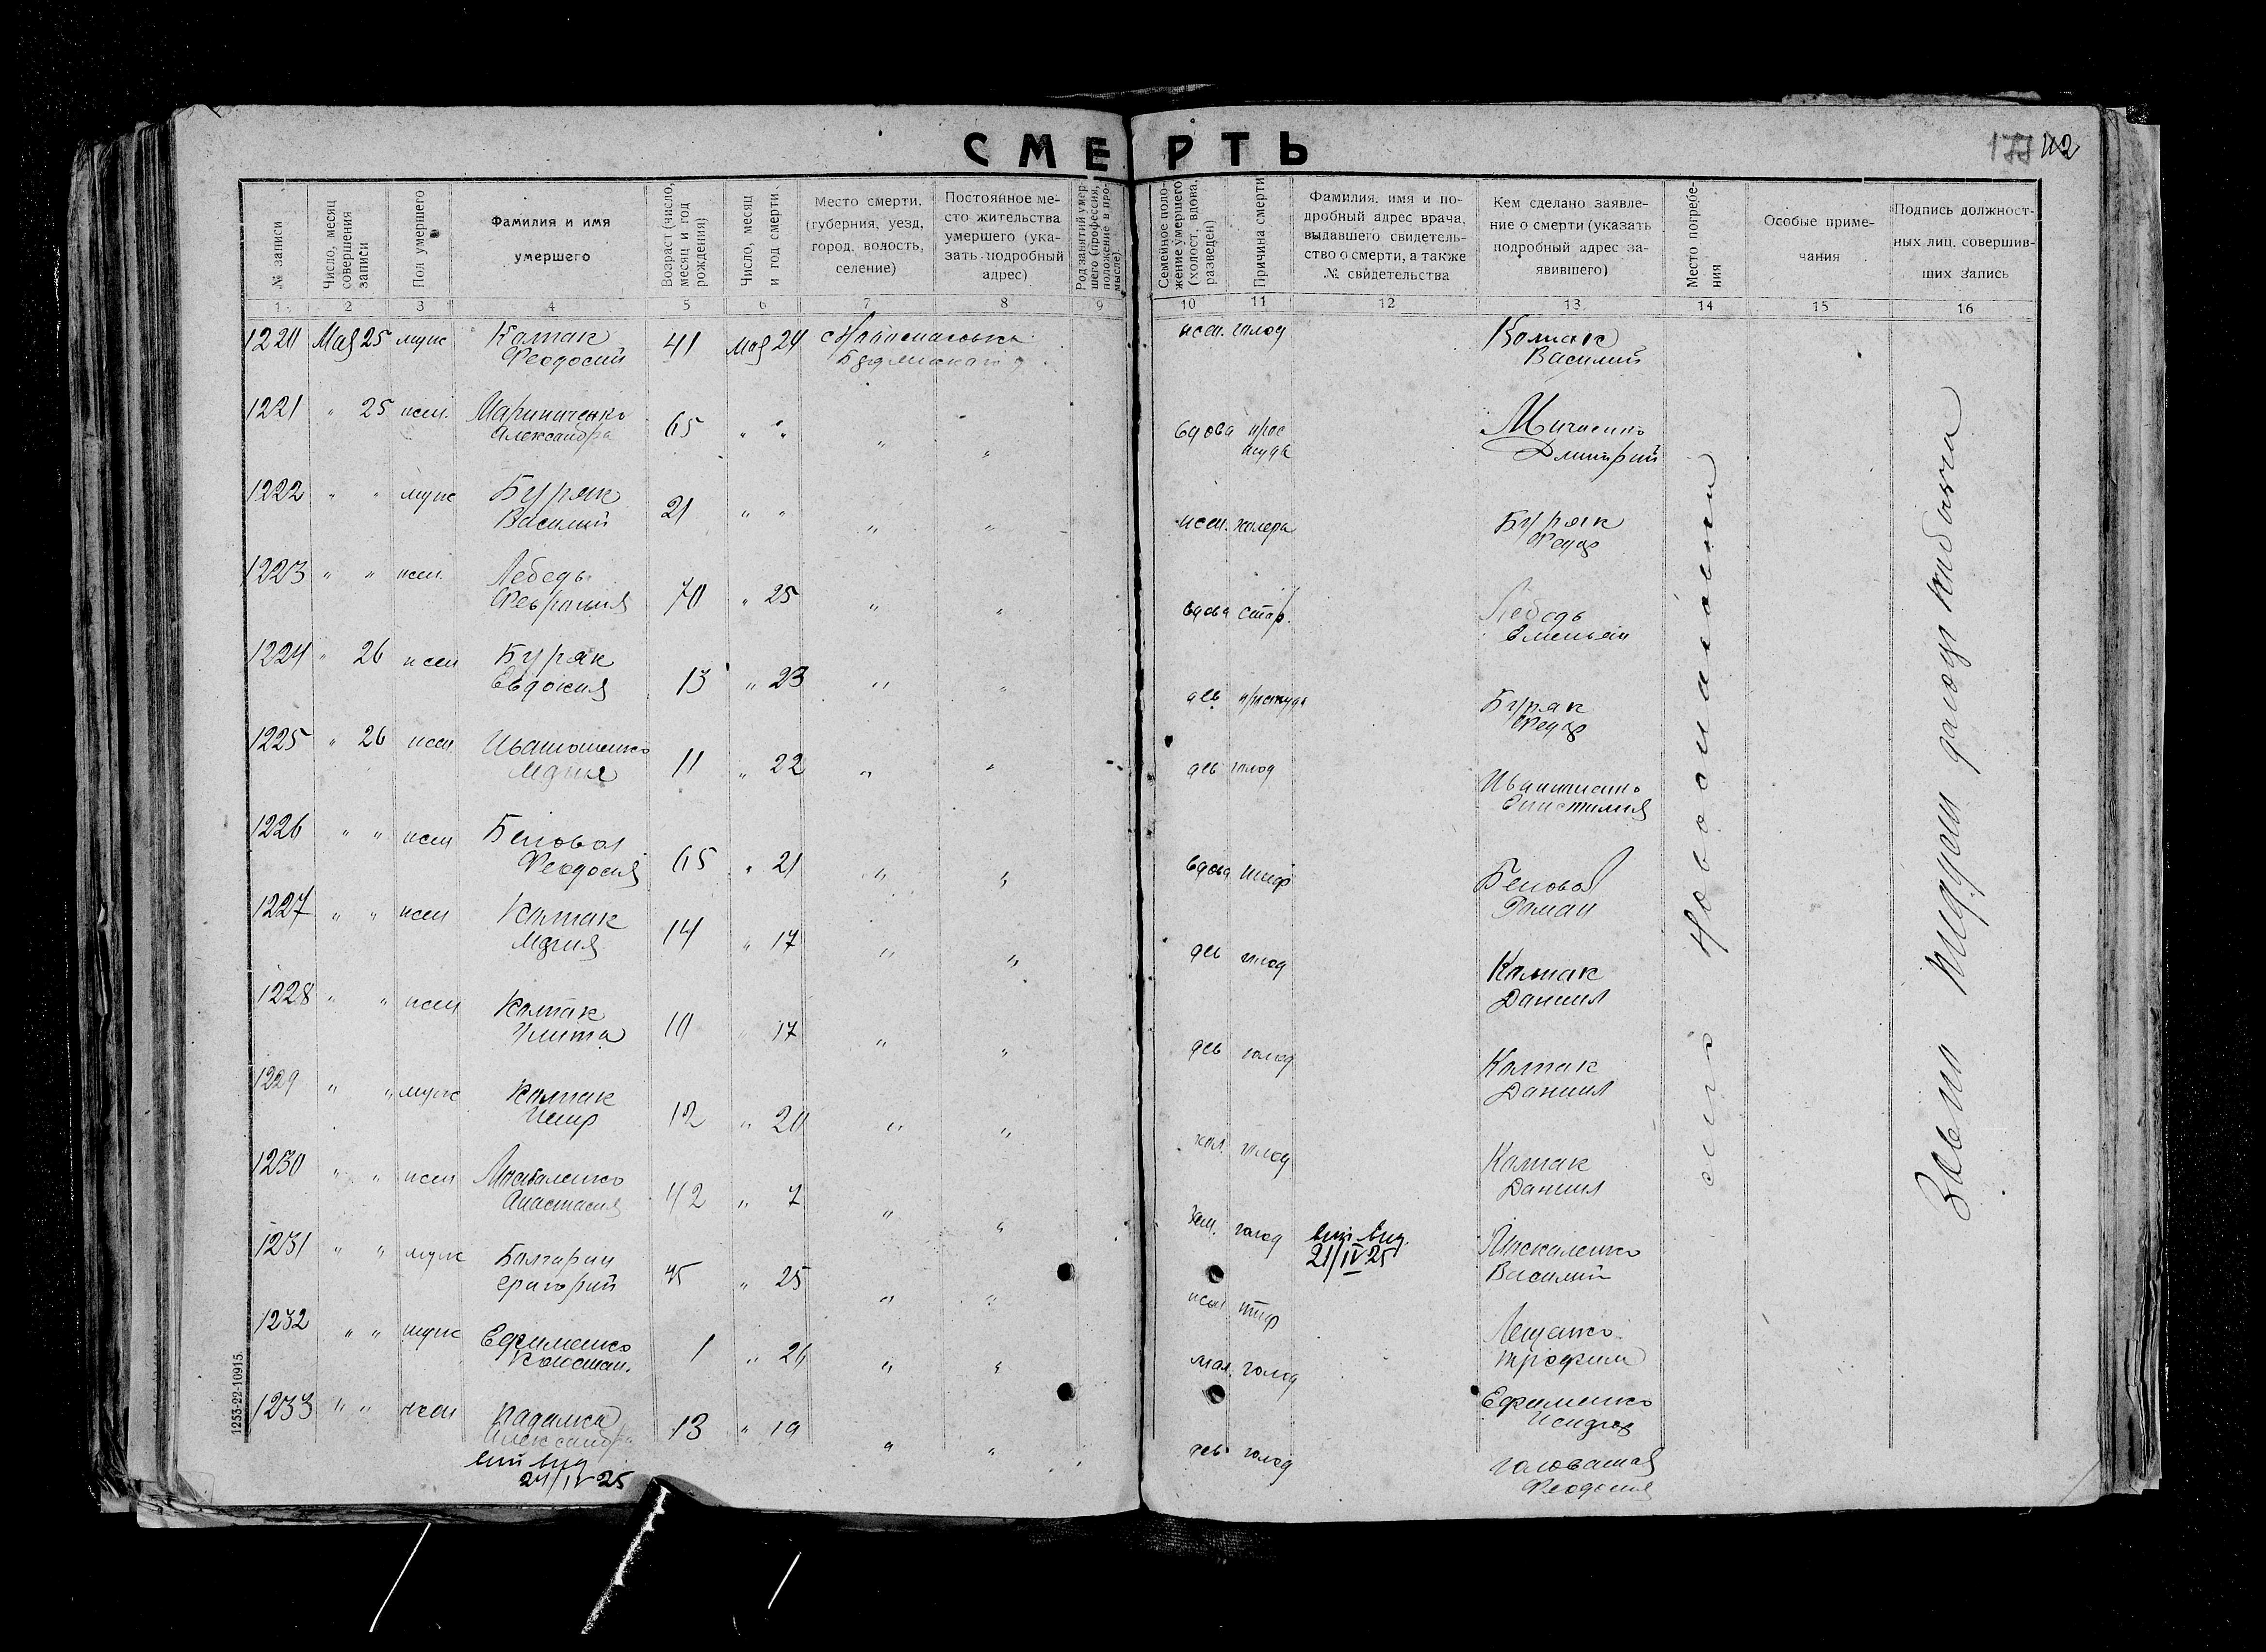 СМЕРТЬ
177 112
№ записи
Число, месяц совершения записи
Пол умершего
Фамилия и имя умершего
Возраст (число, месяц и год рождения)
Число, месяц и год смерти
Место смерти, (губерния, уезд, город, волость, селение)
Постоянное место жительства умершего (указать подробный адрес)
Род занятий умершего (профессия, положение в промысле)
Семейное положение умершего (холост, вдова, разведен)
Причина смерти
Фамилия, имя и подробный адрес врача, выдавшего свидетельство о смерти, а также № свидетельства
Кем сделано заявление о смерти (указать подробный адрес заявившего)
Место погребения
Особые примечания
Подпись должностных лиц, совершивших запись
1 2 3 4 5 6 7 8 9 10 11 12 13 14 15 16
1220 Мая 25 муж Колпак Феодосий 41 Мая 24 жен. голод Колпак Василий
1221 " 25 жен. Мариниченко Александра 65 " " " " вдова простуда Дмитрий
1222 " " муж Буряк Василий 21 " " " " жен. холера Буряк Федор
1223 " " жен. Лебедь Феврония 70 " 25 " " вдова стар. Лебедь Емельян
1224 " 26 жен Буряк Евдокия 13 " 23 " " дев простуда Буряк Федор
1225 " 26 жен 11 " 22 " " дев голод
1226 " " жен Беловол Феодосия 65 " 21 " " вдова тиф Беловол Роман
1227 " " жен Колпак Мария 14 " 17 " " дев голод Колпак Даниил
1228 " " жен Колпак 10 " 17 " " дев голод Колпак Даниил
1229 " " муж Колпак Петр 12 " 20 " " хол. голод Колпак Даниил
1230 " " жен Москаленко Анастасия 42 " 7 " " зам. голод 21/IV 25 Москаленко Василий
1231 " " муж Болгарин Григорий 45 " 25 " " жен тиф Лещенко Трофим
1232 " " муж Ефименко Констан. 1 " 26 " " мал. голод Ефименко Исидор
1233 " " жен Александра 13 " 19 " " дев голод Головатая Феодосия
24/IV 25
село Новоспасовка
Завед. подзаг
1253-22-10915.